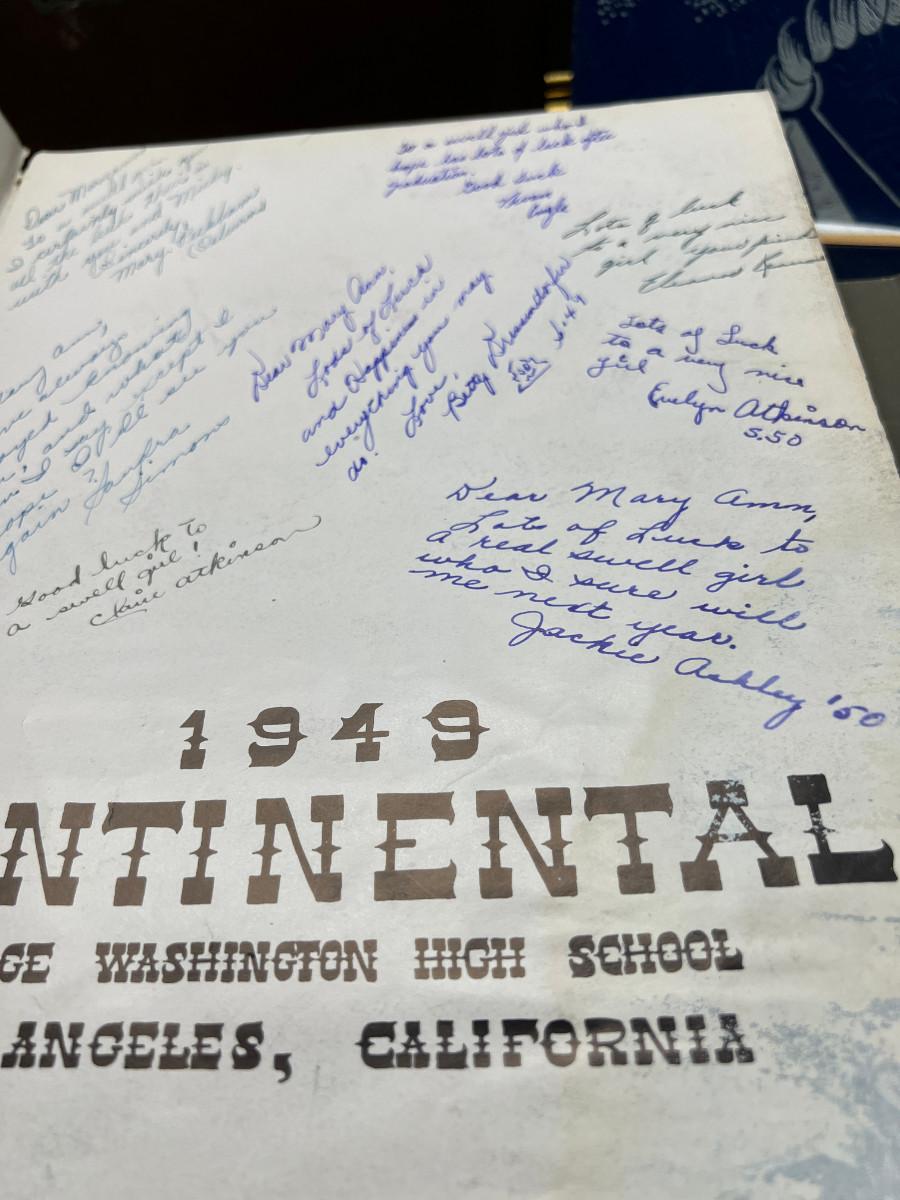 Dear Mary
To a swell girl
I certainly wish you
all the luck there is
with you and Micky.
Sincerely,
Mary
to a swell girl who I
hope has lots of luck after
graduation.
Good luck
Lots of luck
to a very nice
girl your friend
Dear Mary Ann,
Loads of Luck
and Happiness in
everything you may
do.
Love,
Betty
S.49
Lots of Luck
to a very nice
girl
Evelyn Atkinson
S.50
ary ann,
always
oyed knowing
and what
I say except I
hope I'll see you
again
Simons
Good luck to
a swell girl!
Atkinson
Dear Mary Ann,
Lots of Luck to
a real swell girl
who I sure will
me next year.
Jackie Ashley '50
1949
NTINENTAL
GE WASHINGTON HIGH SCHOOL
ANGELES, CALIFORNIA